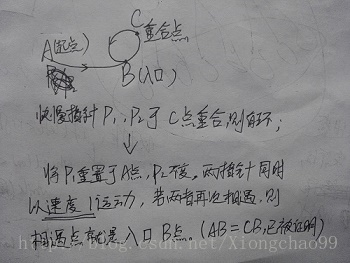 C重合点
A(起点)
B(入口)
快慢指针P₁、P₂于C点重合,则有环;
将P₁重置于A点,P₂不变,两指针同时
以速度1运动,若两者再次相遇,则
相遇点就是入口B点。(AB=CB,已被证明)
http://blog.csdn.net/Xiongchao99